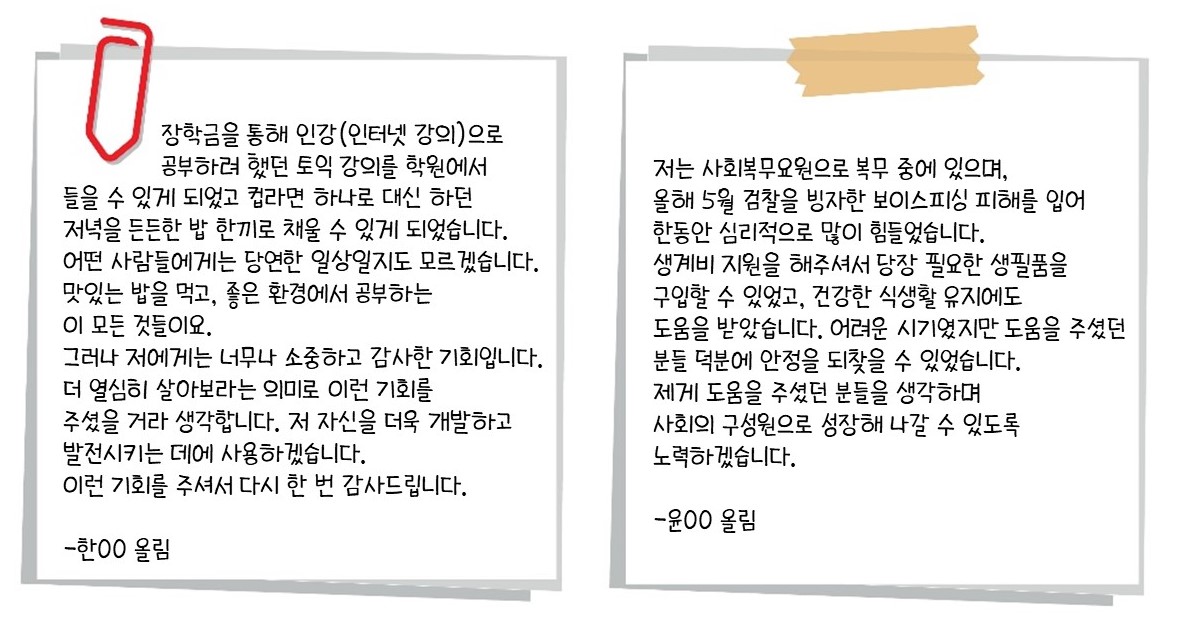 장학금을 통해 인강(인터넷 강의)으로
공부하려 했던 토익 강의를 학원에서
들을 수 있게 되었고 컵라면 하나로 대신 하던
저녁을 든든한 밥 한끼로 채울 수 있게 되었습니다.
어떤 사람들에게는 당연한 일상일지도 모르겠습니다.
맛있는 밥을 먹고, 좋은 환경에서 공부하는
이 모든 것들이요.
그러나 저에게는 너무나 소중하고 감사한 기회입니다.
더 열심히 살아보라는 의미로 이런 기회를
주셨을 거라 생각합니다. 저 자신을 더욱 개발하고
발전시키는 데에 사용하겠습니다.
이런 기회를 주셔서 다시 한 번 감사드립니다.
-한OO 올림
저는 사회복무요원으로 복무 중에 있으며,
올해 5월 검찰을 빙자한 보이스피싱 피해를 입어
한동안 심리적으로 많이 힘들었습니다.
생계비 지원을 해주셔서 당장 필요한 생필품을
구입할 수 있었고, 건강한 식생활 유지에도
도움을 받았습니다. 어려운 시기였지만 도움을 주셨던
분들 덕분에 안정을 되찾을 수 있었습니다.
제게 도움을 주셨던 분들을 생각하며
사회의 구성원으로 성장해 나갈 수 있도록
노력하겠습니다.
-윤OO 올림